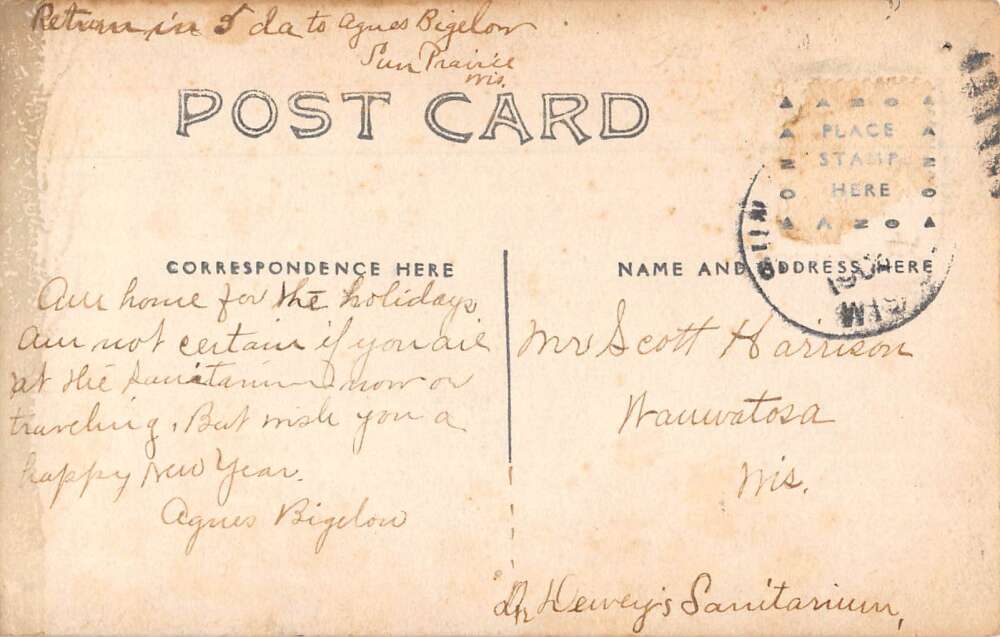 Return in 5 da to Agnes Bigelow
Sun Prairie
Wis.
POST CARD
AZO
PLACE
STAMP
HERE
AZO
CORRESPONDENCE HERE
Am home for the holidays
Am not certain if you are
at the Sanitarium now or
traveling. But wish you a
happy New Year.
Agnes Bigelow
NAME AND ADDRESS HERE
WIS
Mr Scott Harrison
Wauwatosa
Wis.
Dr Dewey's Sanitarium,